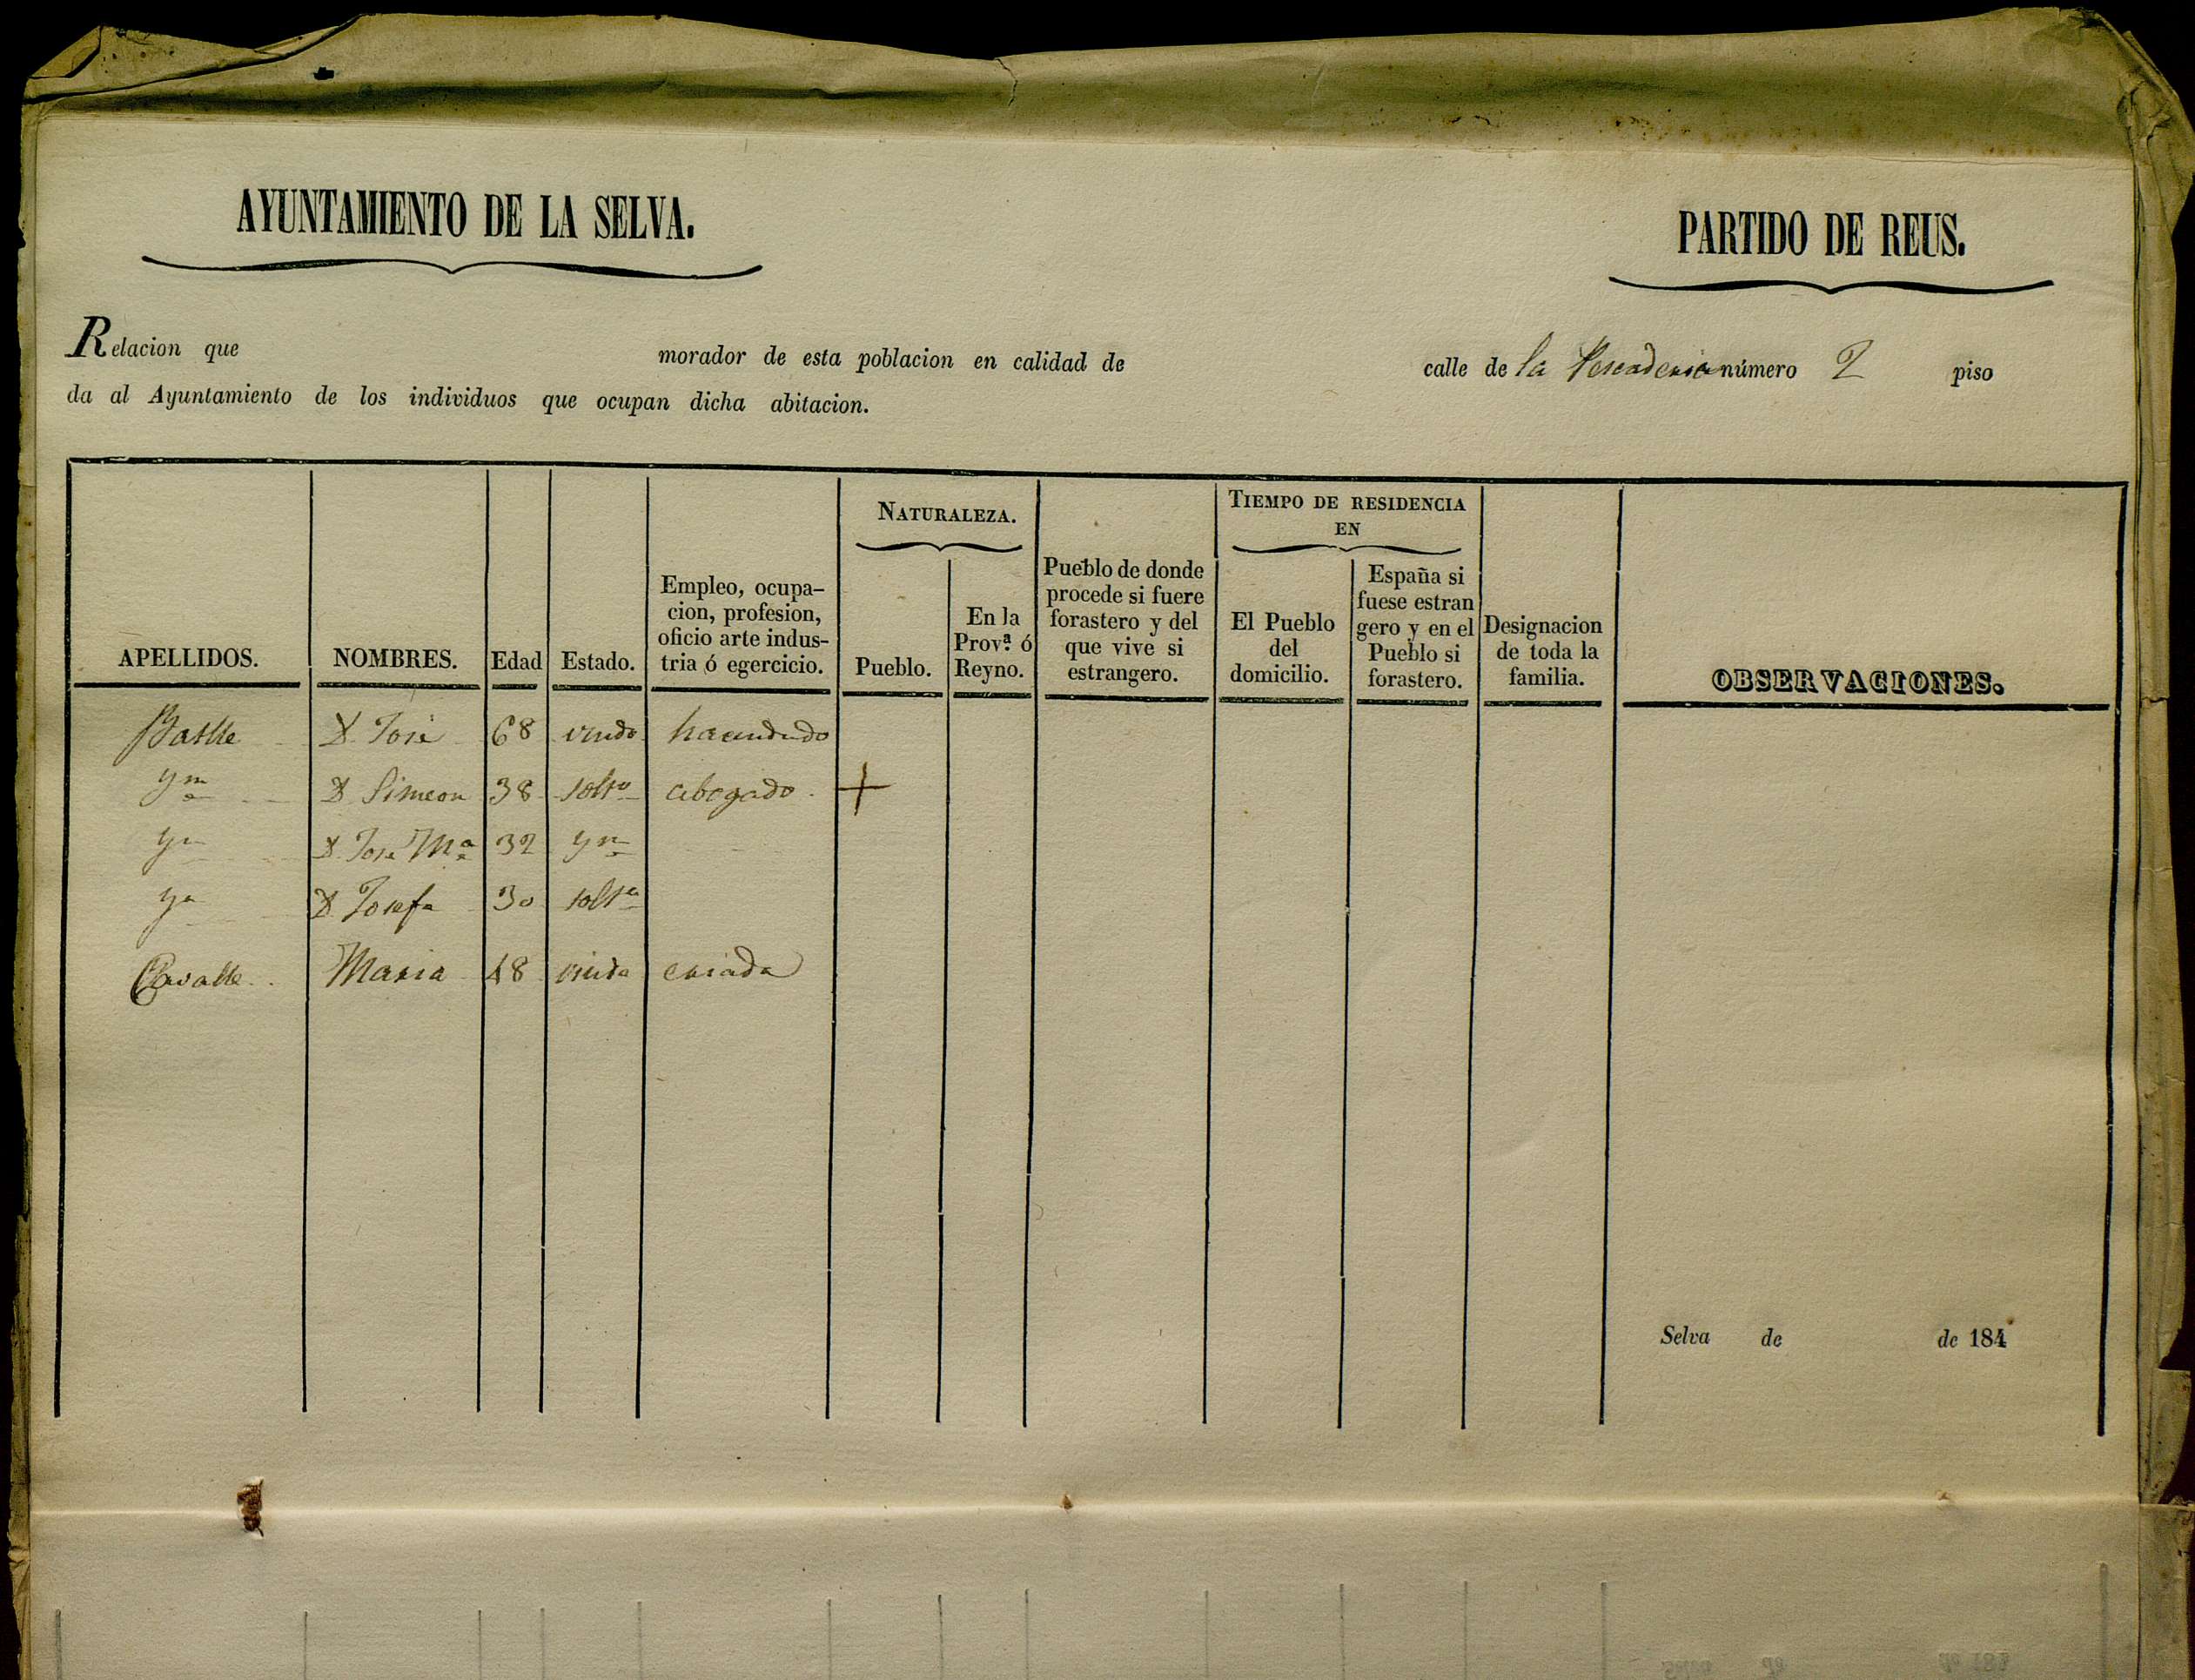 AYUNTAMIENTO DE LA SELVA.
PARTIDO DE REUS.
Relacion que morador de esta poblacion en calidad de calle de la Pescaderia número 2 piso
da al Ayuntamiento de los individuos que ocupan dicha abitacion.
APELLIDOS. NOMBRES. Edad Estado. Empleo, ocupa-
cion, profesion,
oficio arte indus-
tria ó egercicio.
NATURALEZA.
Pueblo.
En la
Prov.ª ó
Reyno.
Pueblo de donde
procede si fuere
forastero y del
que vive si
estrangero.
TIEMPO DE RESIDENCIA
EN
El Pueblo
del
domicilio.
España si
fuese estran
gero y en el
Pueblo si
forastero.
Designacion
de toda la
familia.
OBSERVACIONES.
Batlle D. José 68 viudo hacendado
Ym D. Simeon 38 solto abogado +
Ym D. José Mª 32 Ym
Ym D. Josefa 30 solta
Cavallé Maria 48 viuda criada
Selva de de 184